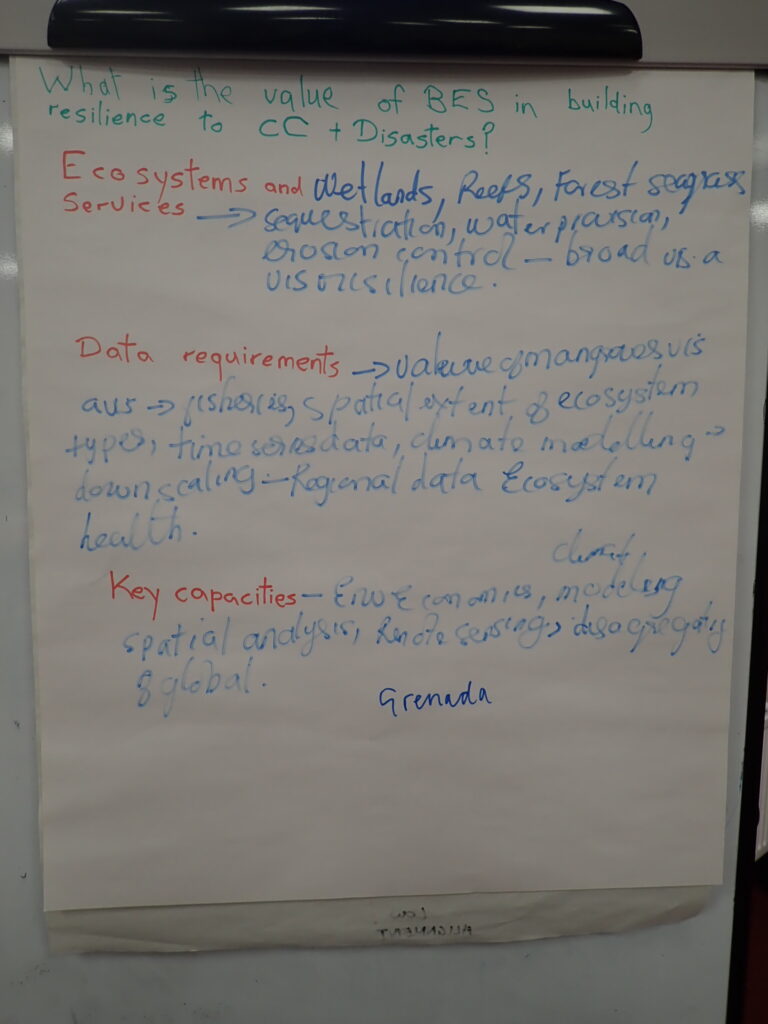 What is the value of BES in building
resilience to CC + Disasters?
Ecosystems and Wetlands, Reefs, Forest seagrass
Services → sequestration, water provision,
erosion control – broad vis a
vis resilience.
Data requirements → value of mangroves vis
avis → fisheries, spatial extent of ecosystem
types, time series data, climate modelling →
downscaling – Regional data Ecosystem
health.
climate
Key capacities – Env Economics, modeling
spatial analysis, Remote sensing,
of global.
Grenada
Low
ALIGNMENT